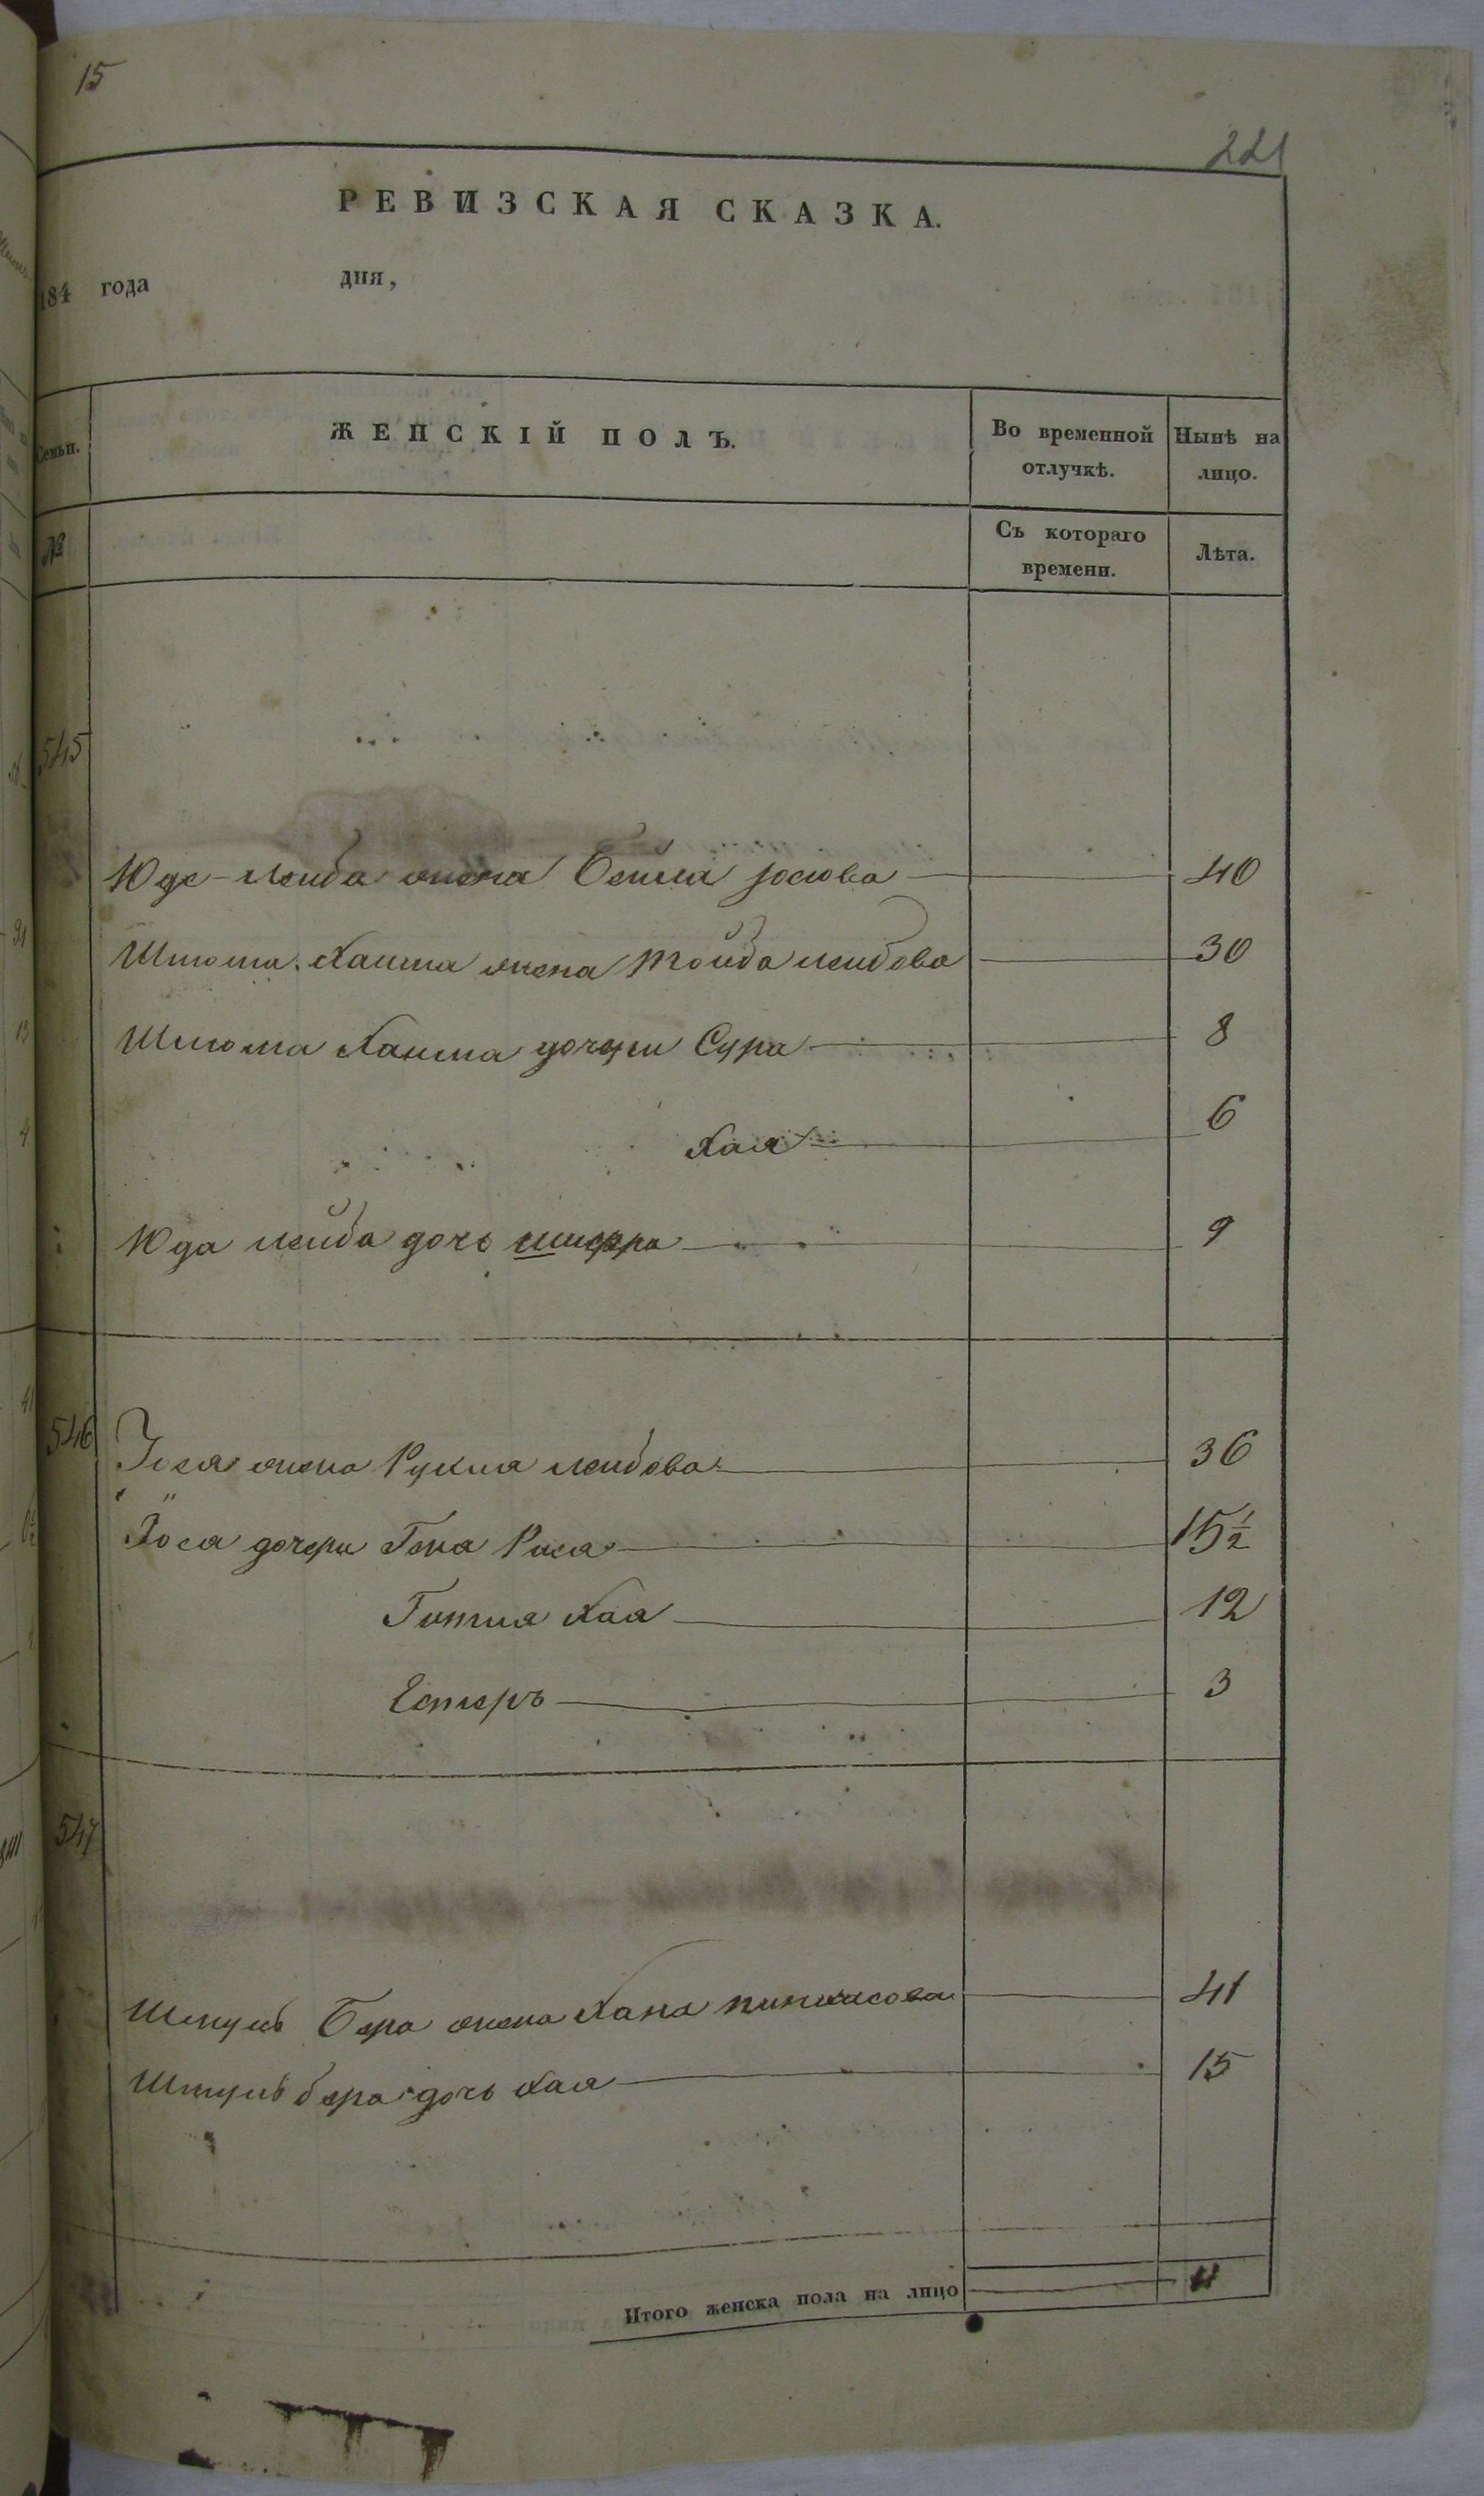 15
221
РЕВИЗСКАЯ СКАЗКА.
184 года дня,
Семьи. ЖЕНСКІЙ ПОЛЪ. Во временной отлучкѣ. Нынѣ на лицо.
№ Съ котораго времени. Лѣта.
545
Юде-Лейба жена Бейла Іосіова 40
Шлiома Хаима жена Тойба лейбова 30
Шлiома Хаима дочери Сура 8
Хая 6
Юда лейба дочь шифра 9
546 Іоса жена Рукля лейбова 36
Іоса дочери Гена Риса 15½
Гитля Хая 12
Естеръ 3
547
Шмуль Бера жена Хана пинхасова 41
Шмуль бера дочь хая 15
Итого женска пола на лицо 11